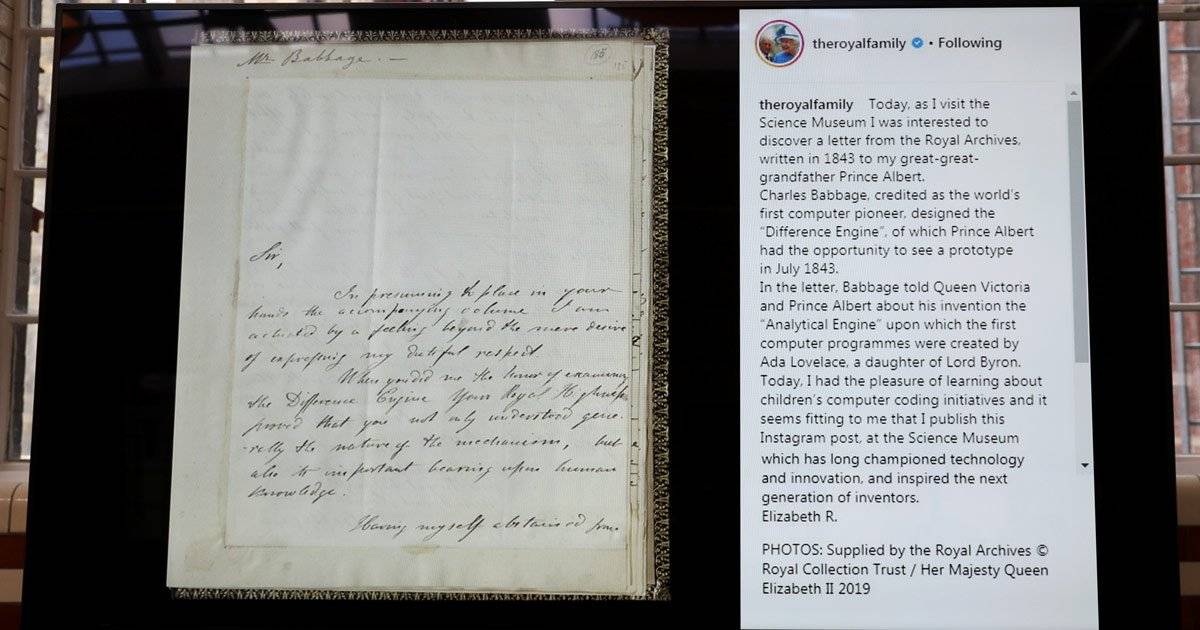 Mr Babbage. —
185
Sir,
In presuming to place in your
hands the accompanying volume I am
actuated by a feeling beyond the mere desire
of expressing my dutiful respect
When you did me the honor of examining
the Difference Engine Your Royal Highness
proved that you not only understood gene-
-rally the nature of the mechanism, but
also its important bearing upon human
knowledge.
Having myself abstained from
theroyalfamily • Following
theroyalfamily Today, as I visit the
Science Museum I was interested to
discover a letter from the Royal Archives,
written in 1843 to my great-great-
grandfather Prince Albert.
Charles Babbage, credited as the world's
first computer pioneer, designed the
“Difference Engine”, of which Prince Albert
had the opportunity to see a prototype
in July 1843.
In the letter, Babbage told Queen Victoria
and Prince Albert about his invention the
“Analytical Engine” upon which the first
computer programmes were created by
Ada Lovelace, a daughter of Lord Byron.
Today, I had the pleasure of learning about
children's computer coding initiatives and it
seems fitting to me that I publish this
Instagram post, at the Science Museum
which has long championed technology
and innovation, and inspired the next
generation of inventors.
Elizabeth R.
PHOTOS: Supplied by the Royal Archives ©
Royal Collection Trust / Her Majesty Queen
Elizabeth II 2019